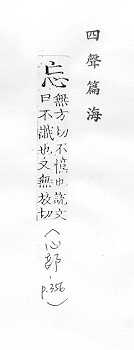 四聲篇海
忘
無方切不憶也說文
曰不識也又無放切
(心部，p.356)